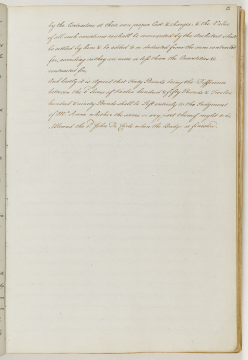 by the Contractors at their own proper Cost & charges & the Value
of all such variations as shall be occasioned by the Architect shall
be settled by him & be added to or deducted from the sum contracted
for, according as they are more or less than the Quantities so
contracted for.
And lastly it is agreed that Forty Pounds being the Difference
between the Sums of hundred & fifty Pounds & Twelve
hundred & ninety Pounds shall be left entirely to the Judgment
of Mr. Soane whether the same or any part thereof ought to be
Allowed the Sd. John De when the Bridge is finished.